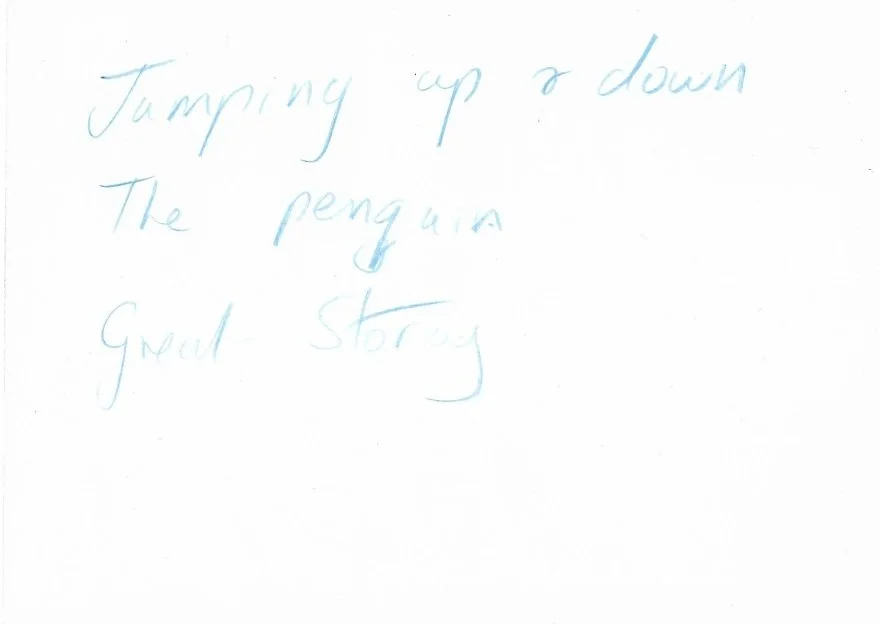 Jumping up & down
The penguin
Great Story